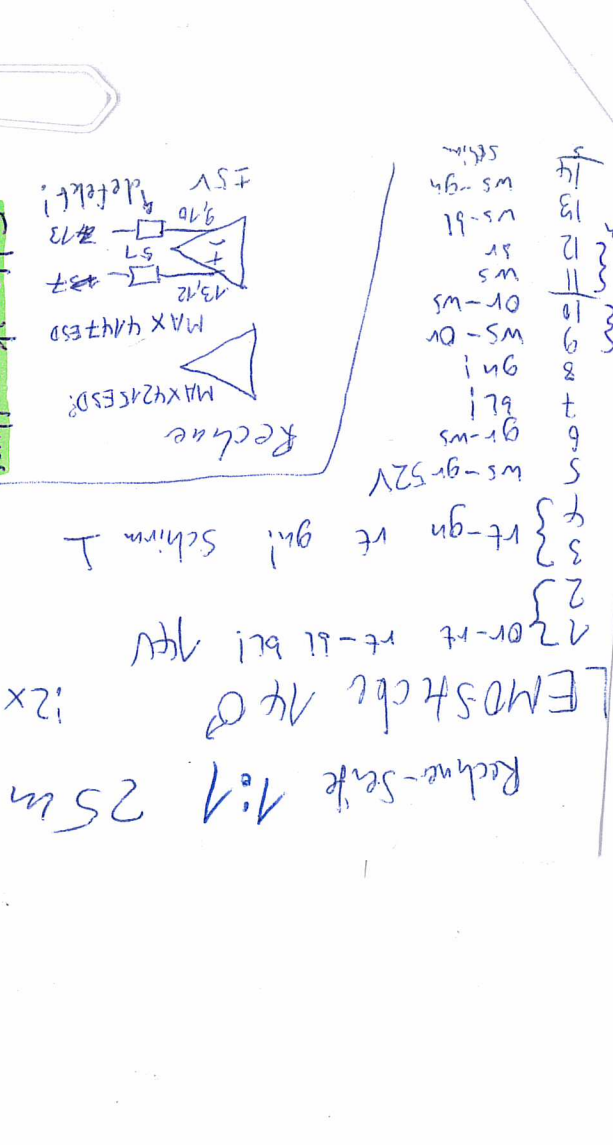 Rechner-Seite 1:1 25m
LEMO Stecker 14 ♂ :2x
1 } or-rt rt-bl bl! 14V
2
3 } rt-gn rt gn! Schirm ⊥
4
5 ws-gr 52V
6 gr-ws
7 bl!
8 gn!
9 ws-or
10 or-ws
11 ws
12 sr
13 ws-bl
14 ws-gn
S Schirm
Rechne
MAX4215ESD?
MAX 4147ESD
13,12
51
9,10
±5V defekt!